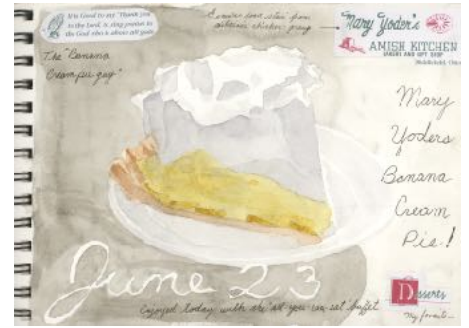 It is Good to say "Thank you"
to the Lord, to sing praises to
the God who is above all gods.
The "Banana
Cream pie guy"
Mary Yoder's
AMISH KITCHEN
BAKERY AND GIFT SHOP
Middlefield, Ohio
Mary
Yoders
Banana
Cream
Pie!
June 23
Enjoyed today with the "all you can eat" buffet
Desserts
my favorite...